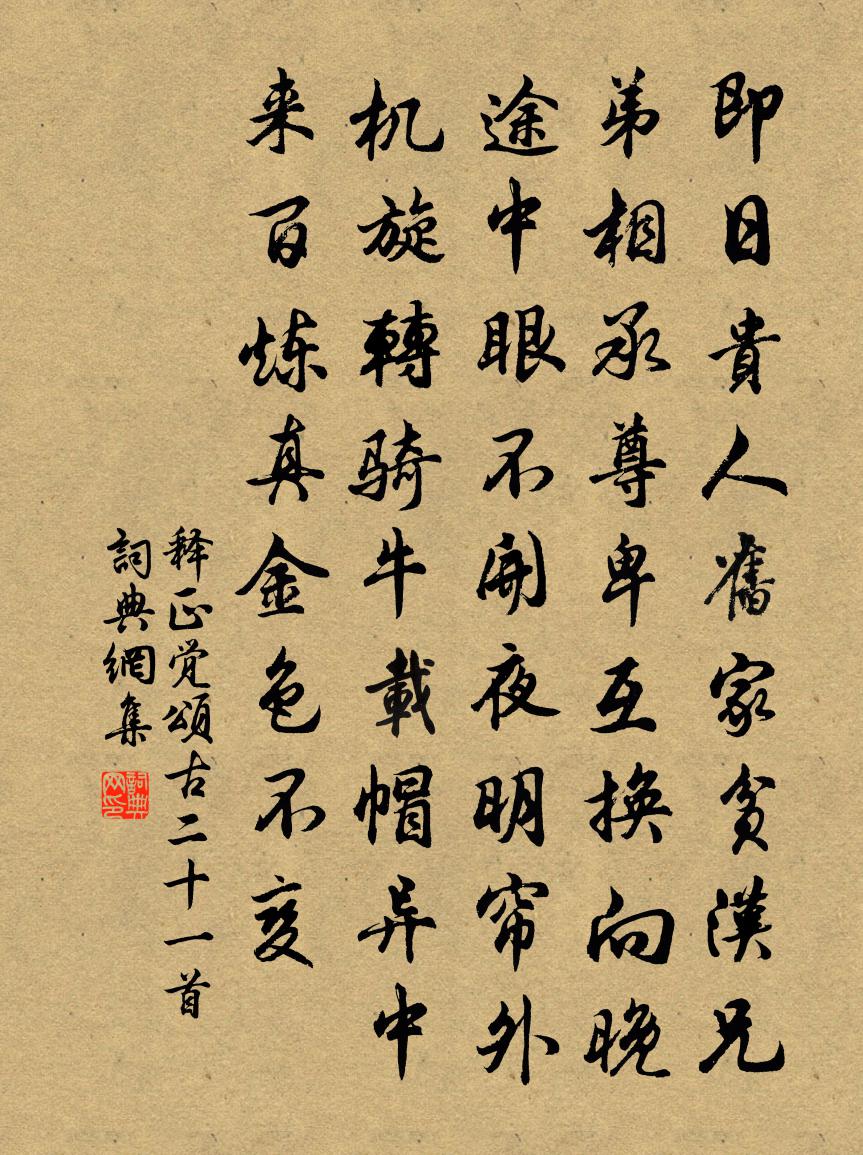 即日貴人舊家貧漢兄
弟相承尊卑互換向晚
途中眼不開夜明帘外
机旋轉骑牛載帽异中
来百炼真金色不变
释正觉頌古二十一首
詞典網集
詞典网印